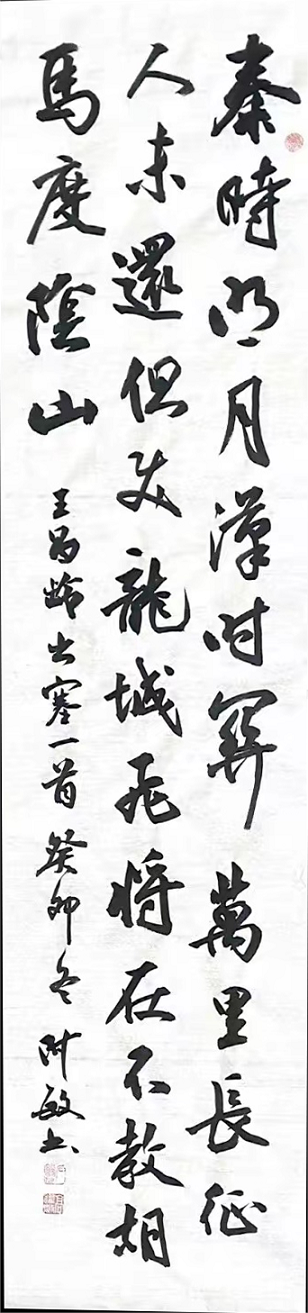 秦時明月漢时關萬里長征
人未還但使龍城飛將在不教胡
馬度陰山 王昌齡出塞一首 癸卯冬 敏书